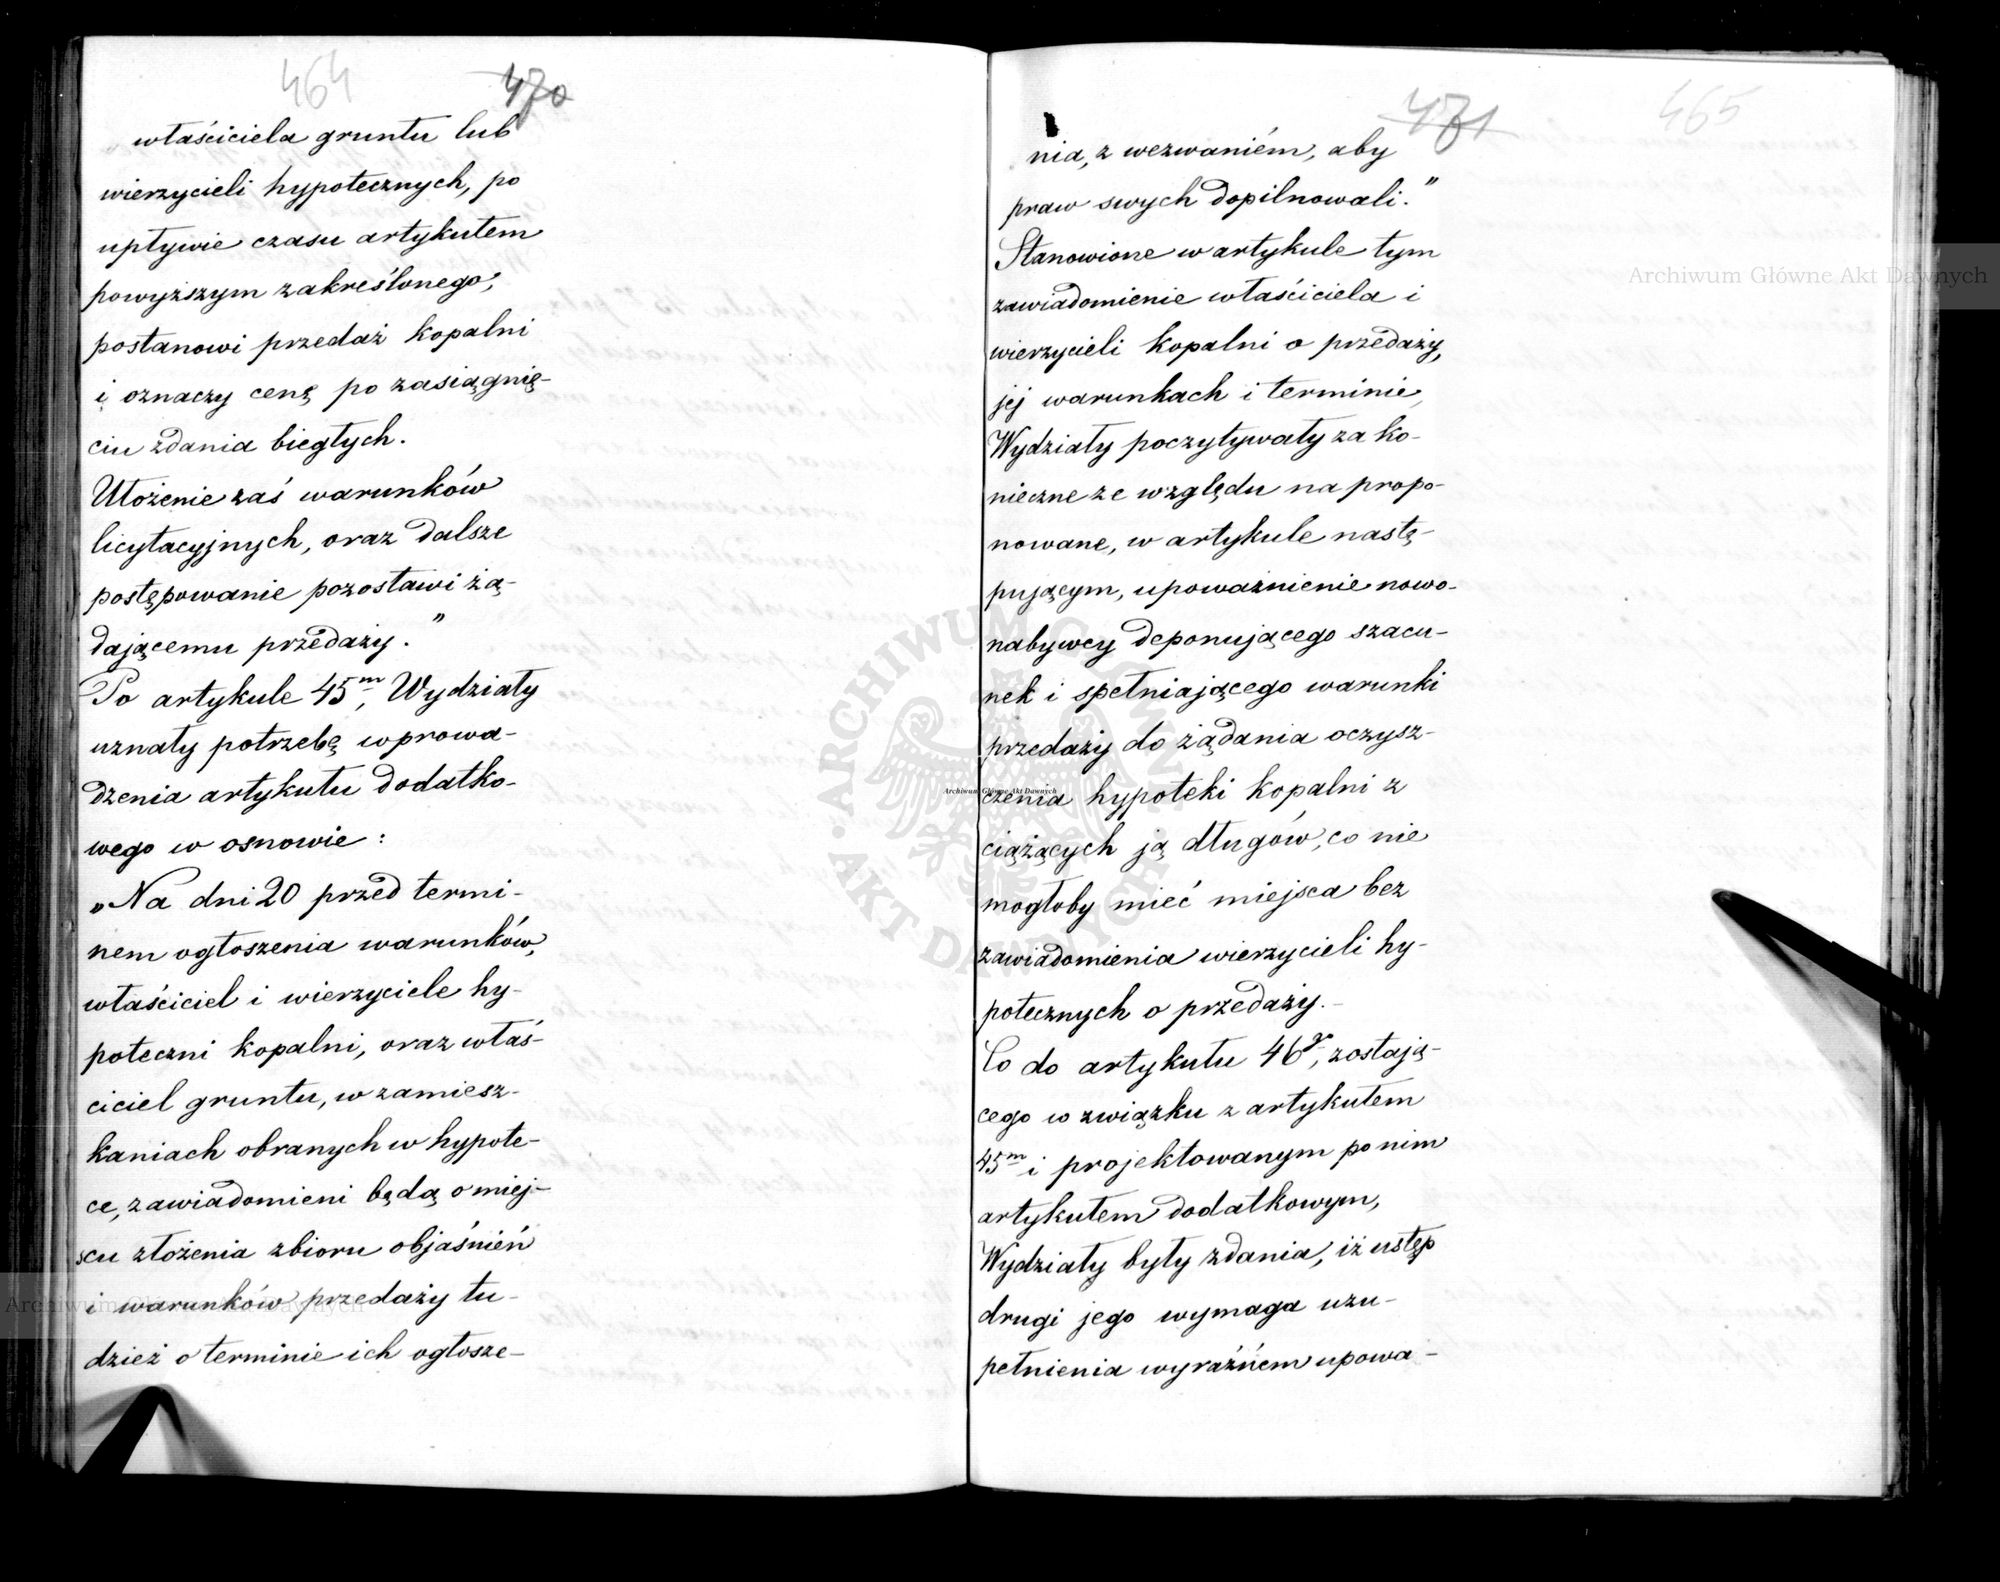 464 470
właściciela gruntu lub
wierzycieli hypotecznych, po
upływie czasu artykułem
powyższym zakreślonego,
postanowi przedaż kopalni
i oznaczy cenę po zasiągnię-
ciu zdania biegłych.
Ułożenie zaś warunków
licytacyjnych, oraz dalsze
postępowanie pozostawi żą-
dającemu przedaży."
Po artykule 45m, Wydziały
uznały potrzebę wprowa-
dzenia artykułu dodatko-
wego w osnowie:
„Na dni 20 przed termi-
nem ogłoszenia warunków,
właściciel i wierzyciele hy-
poteczni kopalni, oraz właś-
ciciel gruntu, w zamiesz-
kaniach obranych w hypote-
ce, zawiadomieni będą o miej-
scu złożenia zbioru objaśnień
i warunków przedaży tu-
dzież o terminie ich ogłosze-
471 465
nia, z wezwaniém, aby
praw swych dopilnowali."
Stanowione w artykule tym
zawiadomienie właściciela i
wierzycieli kopalni o przedaży,
jej warunkach i terminie,
Wydziały poczytywały za ko-
nieczne ze względu na propo-
nowane, w artykule nastę-
pującym, upoważnienie nowo-
nabywcy deponującego szacu-
nek i spełniającego warunki
przedaży do żądania oczysz-
czenia hypoteki kopalni z
ciążących ją długów, co nie
mogłoby mieć miejsca bez
zawiadomienia wierzycieli hy-
potecznych o przedaży.-
Co do artykułu 46go, zostają-
cego w związku z artykułem
45m i projektowanym po nim
artykułem dodatkowym,
Wydziały były zdania, iż ustęp
drugi jego wymaga uzu-
pełnienia wyraźném upowa-
Archiwum Główne Akt Dawnych
Archiwum Główne Akt Dawnych
Archiwum Główne Akt Dawnych
ARCHIWUM GŁÓWNE · AKT DAWNYCH ·